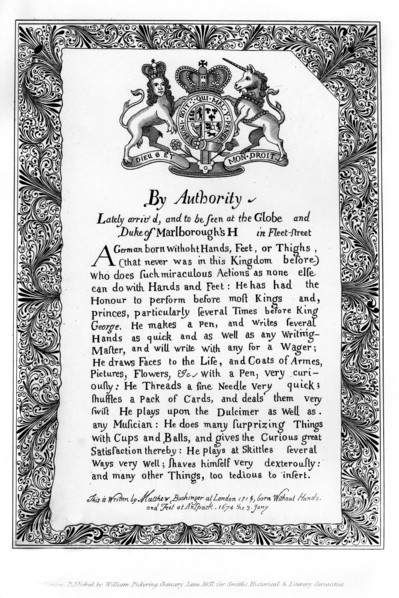 DIEU ET MON DROIT
By Authority
Lately arriv'd, and to be seen at the Globe and
Duke of Marlborough's H in Fleet-street
A German born without Hands, Feet, or Thighs,
(that never was in this Kingdom before)
Who does such miraculous Actions as none else
can do with Hands and Feet: He has had the
Honour to perform before most Kings and,
princes, particularly several Times before King
George. He makes a Pen, and Writes several
Hands as quick and as Well as any Writing-
Master, and will write with any for a Wager;
He draws Faces to the Life, and Coats of Armes,
Pictures, Flowers, &c. With a Pen, very curi-
ously: He Threads a fine Needle Very quick;
shuffles a Pack of Cards, and deals them very
swift. He plays upon the Dulcimer as Well as.
any Musician: He does many surprizing Things
with Cups and Balls, and gives the Curious great
Satisfaction thereby: He plays at Skittles several
Ways very Well; shaves himself very dexterously:
and many other Things, too tedious to insert.
This is Written by Matthew, Buchinger at London born Without Hands.
and Feet at 1674 the 3 Juny
Published by William Pickering Chancery Lane 1837 for Smith's Historical & Literary Curiosities